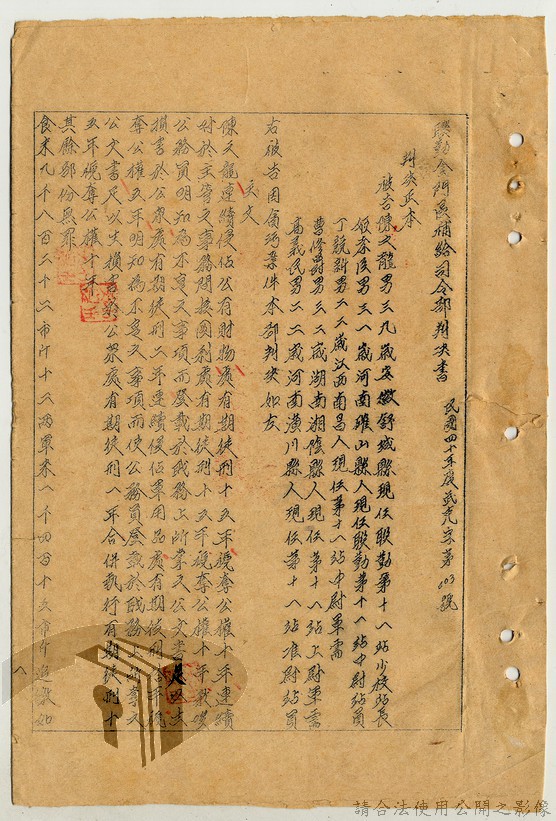 聯勤金門區補給司令部判決書
民國四十年度武克字第003號
判決正本
被告陳文龍男三九歲安徽舒城縣現任聯勤第十八站少校站長
男三八歲河南確山縣人現任聯勤第十八站中尉站員
丁競新男二六歲江西南昌人現任第十八站中尉軍需
曹修爵男三二歲湖南湘陰縣人現任第十八站上尉軍需
高義民男二二歲河南潢川縣人現任第十八站准尉站員
右被告因貪污案件本部判決如左
主文
陳文龍連續侵佔公有財物處有期徒刑十五年褫奪公權十年連續
對於主管之事務間接圖利處有期徒刑十五年褫奪公權十年
公務員明知為不實之事項而登載於職務上所掌之公文書足以生
損害於公眾處有期徒刑二年連續侵佔軍用品處有期徒刑年褫
奪公權五年明知為不實之事項而使公務員登載於職務上所掌之
公文書足以生損害於公眾處有期徒刑一年合併執行有期徒刑十
五年褫奪公權十年
其餘部份無罪
食米九千八百三十二市斤十六兩軍米一千四百十五市斤追繳如
八
請合法使用公開之影像